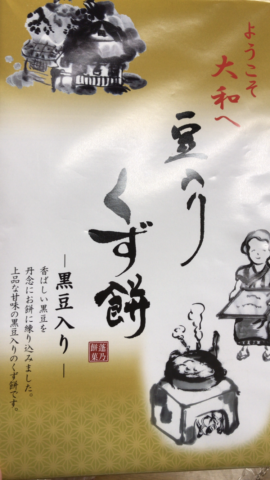 ようこそ
大和へ
豆入り
くず餅
―黒豆入り―
香ばしい黒豆を
丹念にお餅に練り込みました。
上品な甘味の黒豆入りのくず餅です。